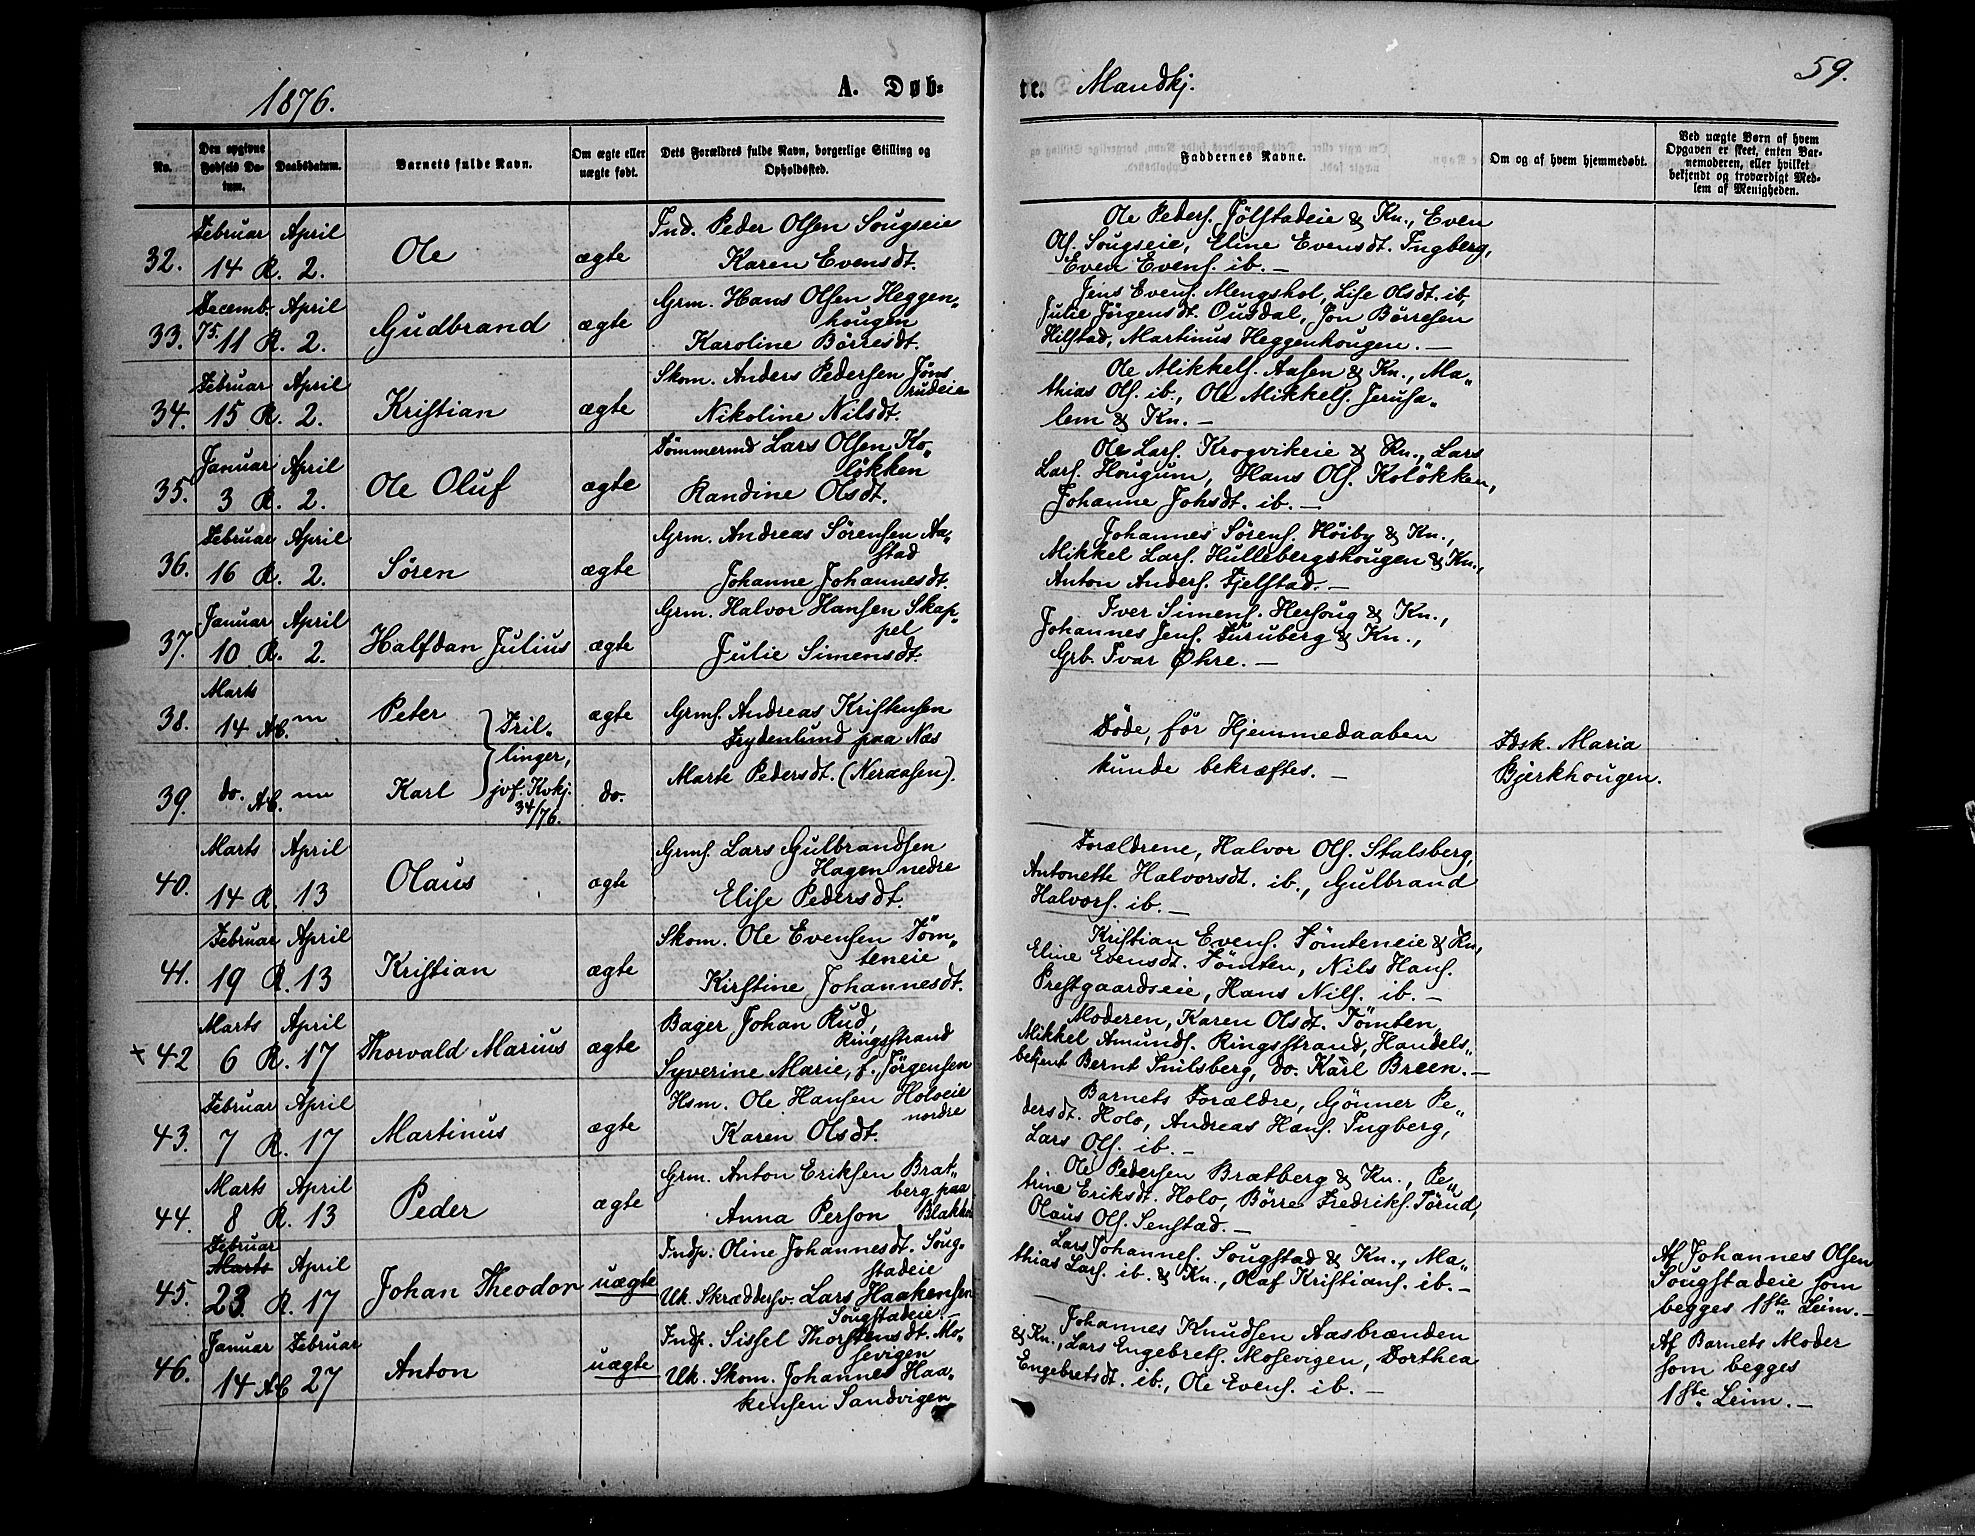 1876.
A. Døb-
te. Mandkj.
59.
No.
Den opgivne Fødsels Da-
tum.
Daabsdatum.
Barnets fulde Navn.
Om ægte eller
uægte født.
Dets Forældres fulde Navn, borgerlige Stilling og
Opholdssted.
Faddernes Navne.
Om og af hvem hjemmedøbt.
Ved uægte Børn af hvem
Opgaven er skeet, enten Bar-
nemoderen, eller hvilket
bekjendt og troværdigt Med-
lem af Menigheden.
32.
Februar
14 R.
April
2.
Ole
ægte
Ind. Peder Olsen Sougseie
Karen Evensdt.
Ole Peders. Jølstadeie & Kn., Even
Ols. Sougseie, Eline Evensdt. Ingberg,
Even Evens. ib. —
33.
Decemb.
75. 11 R.
April
2.
Gudbrand
ægte
Grm. Hans Olsen Heggen-
hougen
Karoline Börresdt.
Jens Evens. Mengshol, Lise Olsdt. ib,
Julie Jörgensdt. Ousdal, Jon Börresen
Hilstad, Martinus Heggenhougen. —
34.
Februar
15 R.
April
2.
Kristian
ægte
Skom. Anders Pedersen Jöns
rudeie
Nikoline Nilsdt.
Ole Mikkels. Aasen & Kn., Ma-
thias Ols. ib., Ole Mikkels. Jerusa-
lem & Kn. —
35.
Januar
3 R.
April
2.
Ole Oluf
ægte
Tömmermd Lars Olsen Ko-
lökken
Randine Olsdt.
Ole Lars. Krogvikeie & Kn., Lars
Lars. Hougum, Hans Ols. Kolökken,
Johanne Johsdt. ib. —
36.
Februar
16 R.
April
2.
Søren
ægte
Grm. Andreas Sörensen Aa-
stad
Johanne Johannesdt.
Johannes Sörens. Höiby & Kn.,
Mikkel Lars. Hullebergshougen & Kn.,
Anton Anders. Fjelstad. —
37.
Januar
10 R.
April
2.
Halfdan Julius
ægte
Grm. Halvor Hansen Skap-
pel
Julie Simensdt.
Iver Simens. Hersoug & Kn.,
Johannes Jens. Furuberg & Kn.,
Grb. Ivar Øhre. —
38.
Marts
14 AC.
Peter
Tril-
linger,
jvf. Kvkj.
34/76.
ægte
Grmf. Andreas Kristensen
Frydenlund paa Næs
Døde, før Hjemmedaaben
Fdsk. Maria
39.
do. AC.
Karl
do.
Marte Pedersdt. (Neraasen).
kunde bekræftes. —
Bjerkhougen.
40.
Marts
14 R.
April
13
Olaus
ægte
Grmf. Lars Gulbrandsen
Hagen nedre
Elise Pedersdt.
Forældrene, Halvor Ols. Stalsberg,
Antonette Halvorsdt. ib., Gulbrand
Halvors. ib. —
41.
Februar
19 R.
April
13
Kristian
ægte
Skom. Ole Evensen Töm-
teneie
Kirstine Johannesdt.
Kristian Evens. Tömteneie & Kn,
Eline Evensdt. Tömten, Nils Hans.
Prestgaardseie, Hans Nils. ib. —
+ 42
Marts
6 R.
April
17
Thorvald Marius
ægte
Bager Johan Rud,
Ringsstrand
Syverine Marie, f. Jörgensen
Moderen, Karen Olsdt. Tömten,
Mikkel Amunds. Ringsstrand, Handels-
betjent Bernt Snilsberg, do. Karl Breen. —
43.
Februar
7 R.
April
17
Martinus
ægte
Hsm. Ole Hansen Holoeie
nordre
Karen Olsdt.
Barnets Forældre, Gönner Pe-
dersdt. Holo, Andreas Hans. Ingberg,
Lars Ols. ib. —
44.
Marts
8 R.
April
13
Peder
ægte
Grm. Anton Eriksen Brat-
berg paa
Anna Person Blakke
Ole Pedersen Bratberg & Kn., Pe-
trine Eriksdt. Holo, Börre Fredriks. Törud,
Olaus Ols. Senstad. —
45.
Februar
Marts
23. R.
April
17
Johan Theodor
uægte
Indp. Oline Johannesdt. Soug-
stadeie
Uk. Skræddersv. Lars Haakensen
Sougstadeie. —
Lars Johannes. Sougstad & Kn., Ma-
thias Lars. ib. & Kn., Olaf Kristians. ib. —
Af Johannes Olsen
Sougstadeie som
begges 1ste Leim. —
46.
Januar
14 AC
Februar
27
Anton
uægte
Indp. Sissel Thorstensdt. Mo-
sevigen
Uk. Skom. Johannes Haa-
kensen Sandvigen
Johannes Knudsen Aasbrænden
& Kn., Lars Engebrets. Mosevigen, Dorthea
Engebretsdt. ib., Ole Evens. ib. —
Af Barnets Moder
som begges
1ste Leim. —